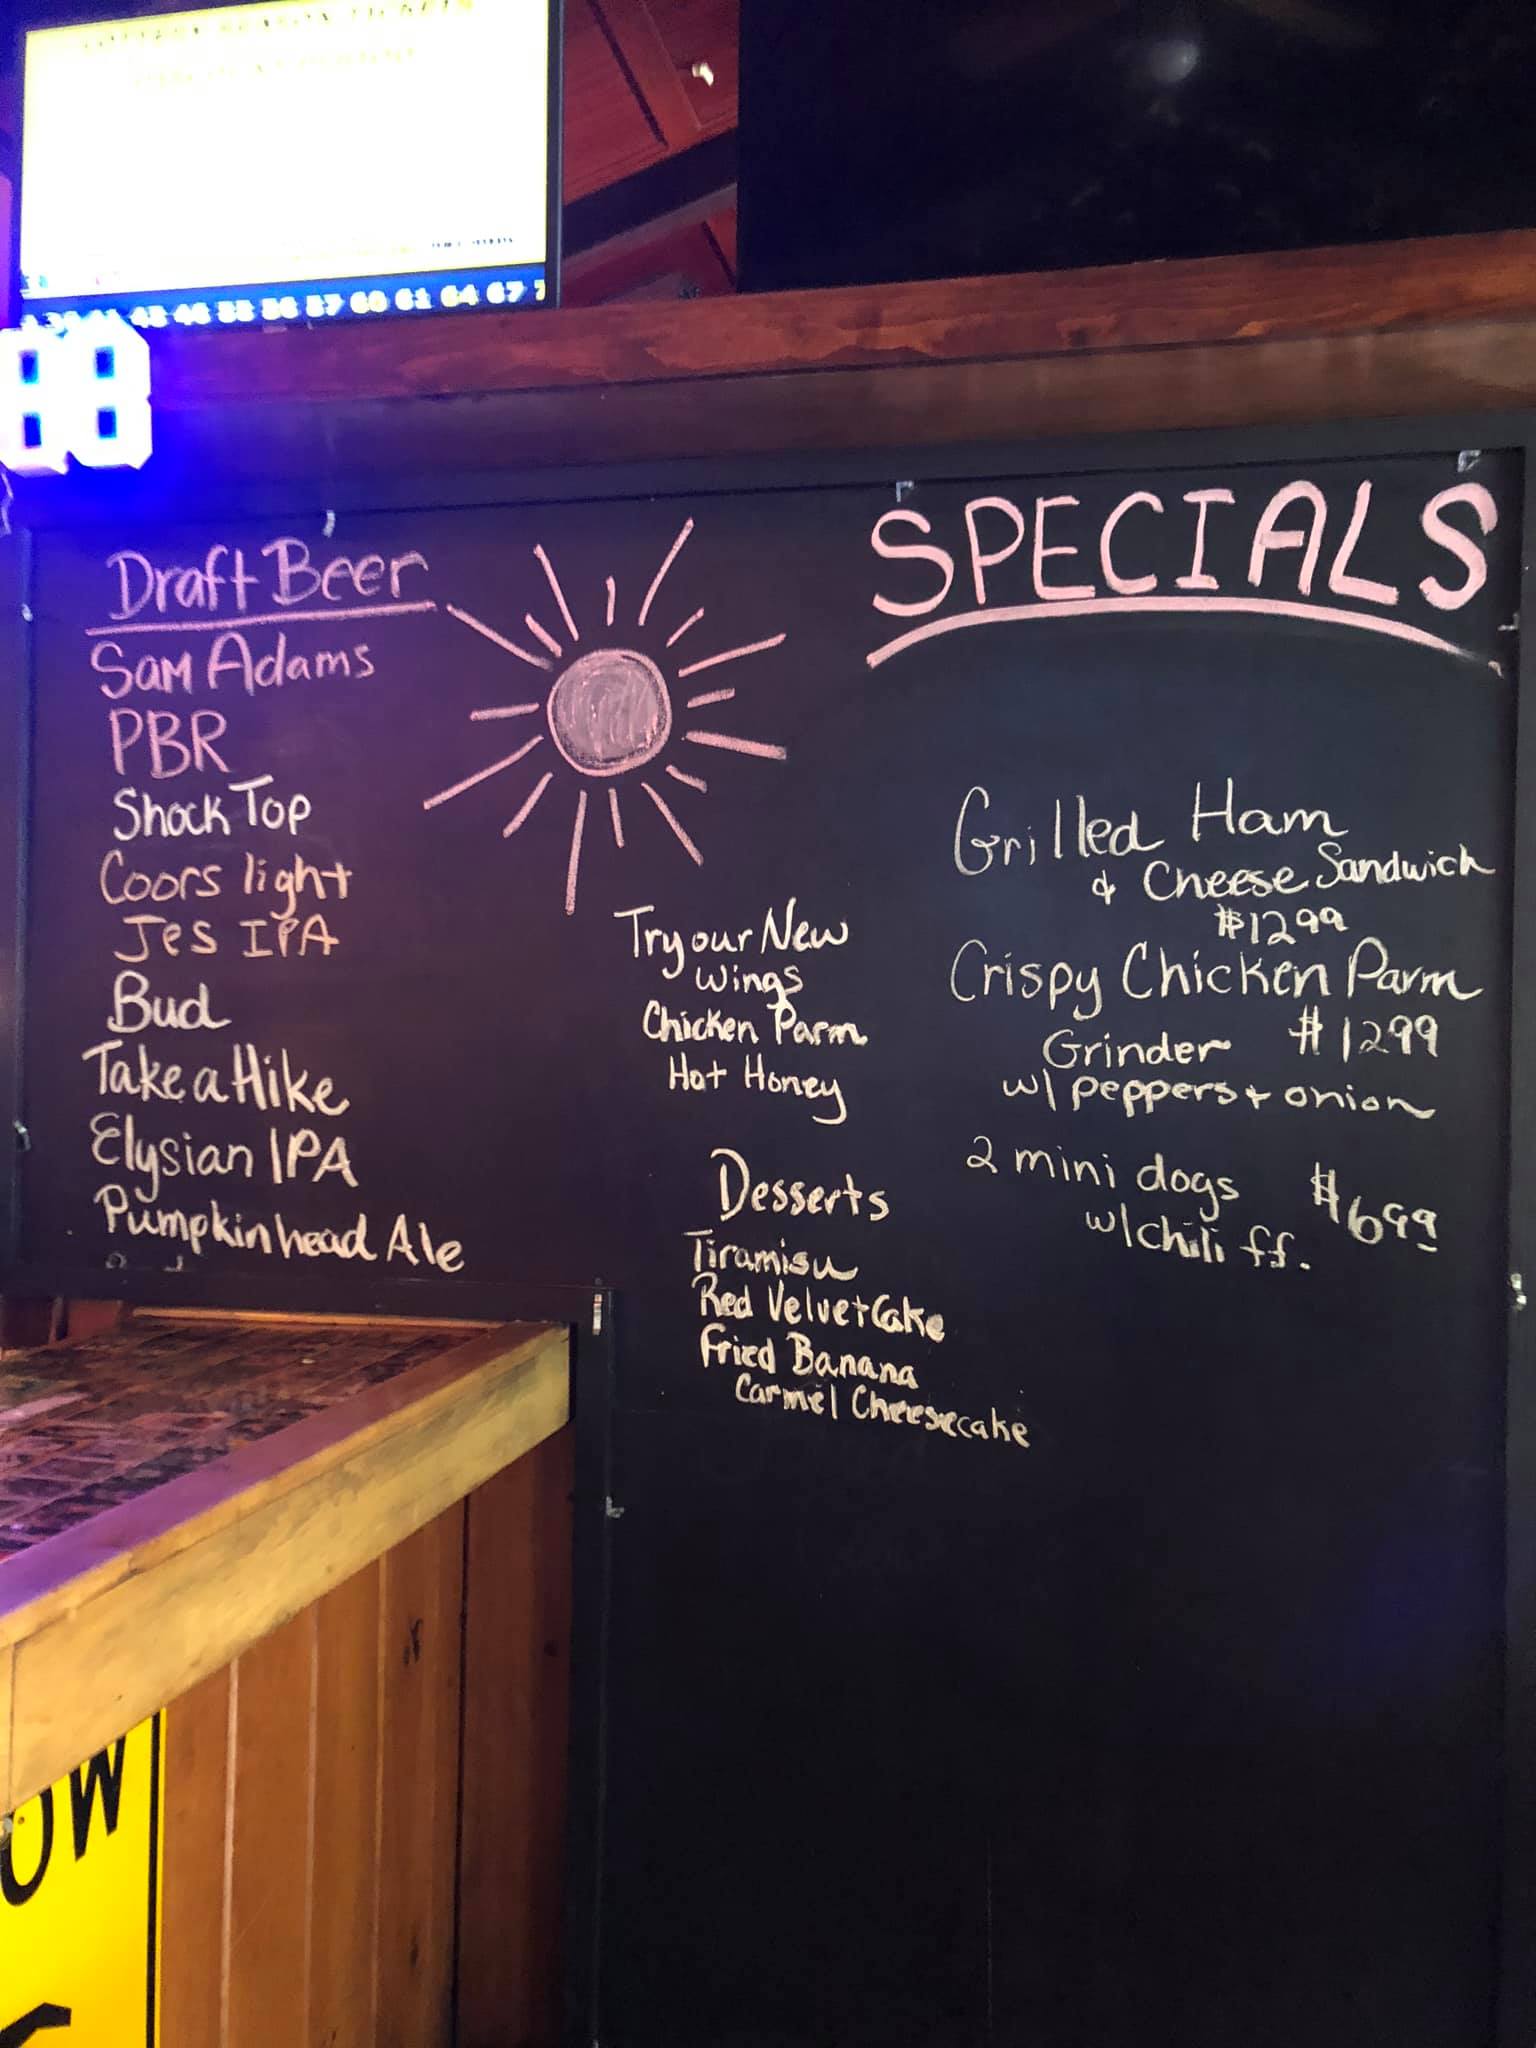 43 46 53 56 57 60 61 64 67
88
Draft Beer
Sam Adams
PBR
Shock Top
Coors light
Jes IPA
Bud
Take a Hike
Elysian IPA
Pumpkinhead Ale
Try our New
Wings
Chicken Parm
Hot Honey
Desserts
Tiramisu
Red Velvet Cake
Fried Banana
Carmel Cheesecake
SPECIALS
Grilled Ham
& Cheese Sandwich
$1299
Crispy Chicken Parm
Grinder $1299
w/ peppers + onion
2 mini dogs $699
w/chili ff.
OW